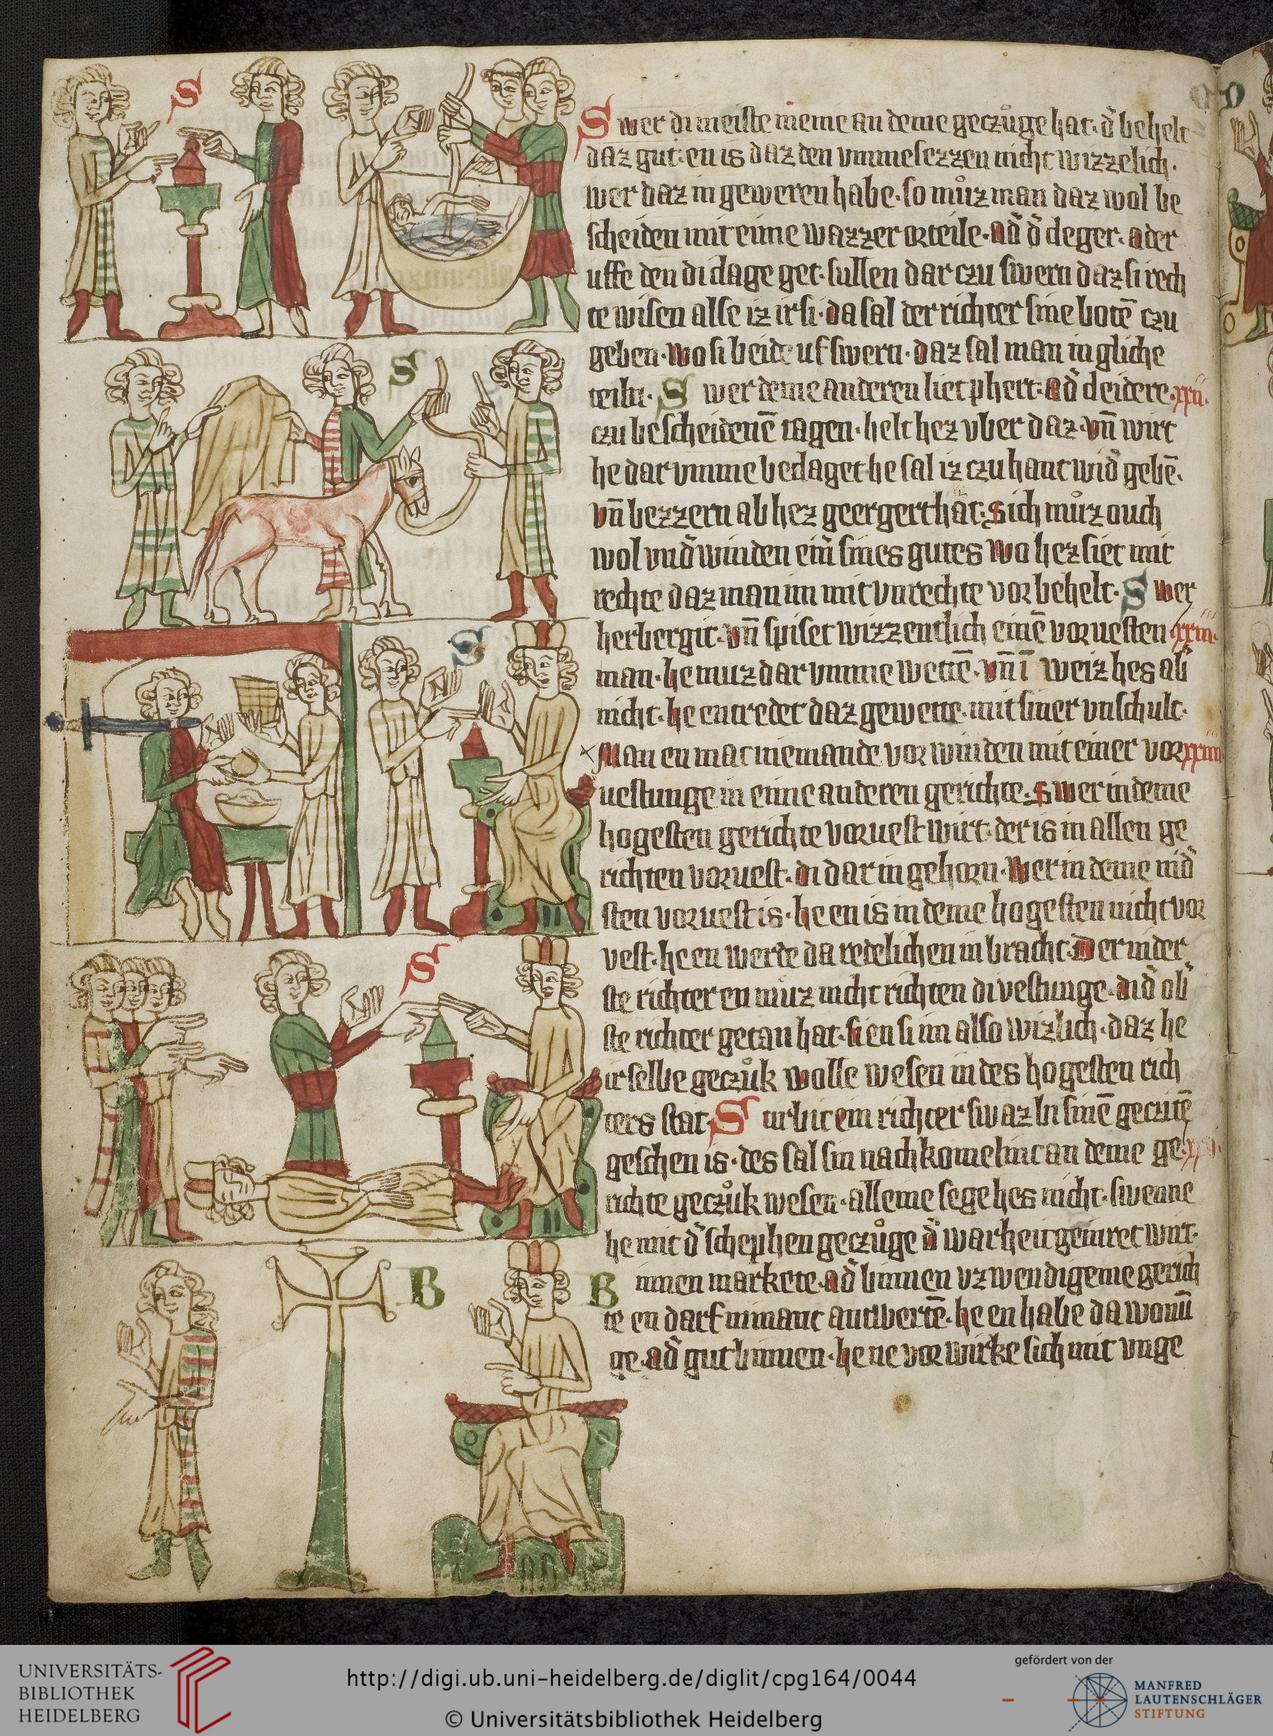 S wer di meiste menie an deme geczůge hat· d' behelt
daz gut· en is daz den vmmesezzen nicht wizzelich·
wer daz in geweren habe· so můz man daz wol be
scheiden mit eime wazzer orteile· ad' d' cleger· ader
uffe den di clage get· sullen dar czu swern daz si rech
te wisen alse iz ir si· da sal der richter sine botē czu
geben· wo si beide uf swern· daz sal man in gliche
teiln· S wer deme anderen liet phert· ad' cleidere ·xxii·
czu bescheidenē tagen· helt hez vber daz· vn̄ wirt
he dar vmme beclaget he sal iz czu hant wid' gebē·
vn̄ bezzern ab hez geergert hat· sich můz ouch
wol vnd'winden ein' sines gutes wo hez siet mit
rechte daz man im mit vnrechte vorbehelt· S wer
herbergit· vn̄ spiset wizzentlich einē voruesten ·xxiii·
man· he muz dar vmme wettē· vn̄ ī weiz hes ab'
nicht· he entredet daz gewette· mit siner vnschult·
Man en mac niemande vorwinden mit einer vor xxiiii
uestunge in eime anderen gerichte· swer in deme
hogesten gerichte voruest wirt· der is in allen ge
richten voruest· di dar in gehorn· wer in deme nid'
sten voruest is· he en is in deme hogesten nicht vor
vest· he en werde da redelichen in bracht· Der nider
ste richter en muz nicht richten di vestunge· di d' ob'
ste richter getan hat· si en si im also wizlich· daz he
ir selbe geczůk wolle wesen in des hogesten rich
ters stat· S tirbit ein richter swaz bi sinē gecziitē
geschen is· des sal sin nachkomelinc an deme ge
richte geczůk wesen· alleine sege hes nicht· swenne
he mit d' schephen geczůge d' warheit geinret wirt·
B innen markete· ad' binnen vzwendigeme gerich
te en darf nimant antwertē· he en habe da wonū
ge· ad' gut binnen· he ne vorwirke sich mit vnge
S
S
S
S
B
UNIVERSITÄTS-
BIBLIOTHEK
HEIDELBERG
http://digi.ub.uni-heidelberg.de/diglit/cpg164/0044
© Universitätsbibliothek Heidelberg
gefördert von der
MANFRED
LAUTENSCHLÄGER
STIFTUNG